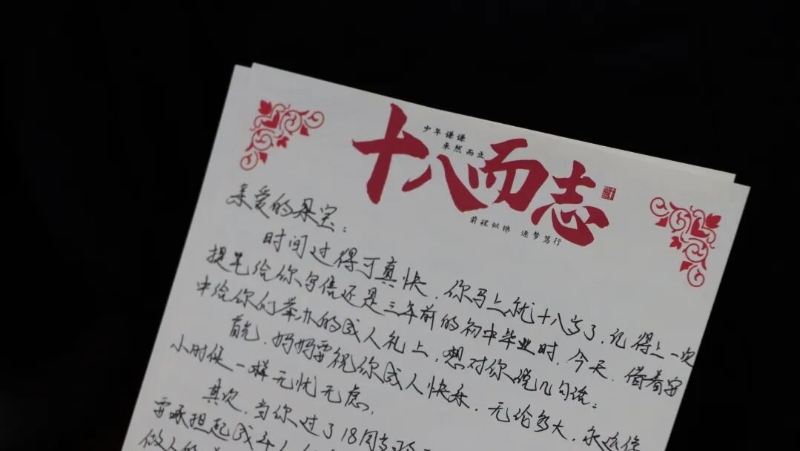 少年谦谦
然而立
十八而志
前程似锦 逐梦笃行
亲爱的宝：
时间过得可真快，你马上就十八岁了，记得上一次
提笔给你写信还是三年前的初中毕业时，今天，借着安
中给你们举办的成人礼上，想对你说几句话：
首先，妈妈要祝你成人快乐，无论多大，永远像
小时候一样无忧无虑。
其次，当你过了18周岁
要承担起成年人
做人的